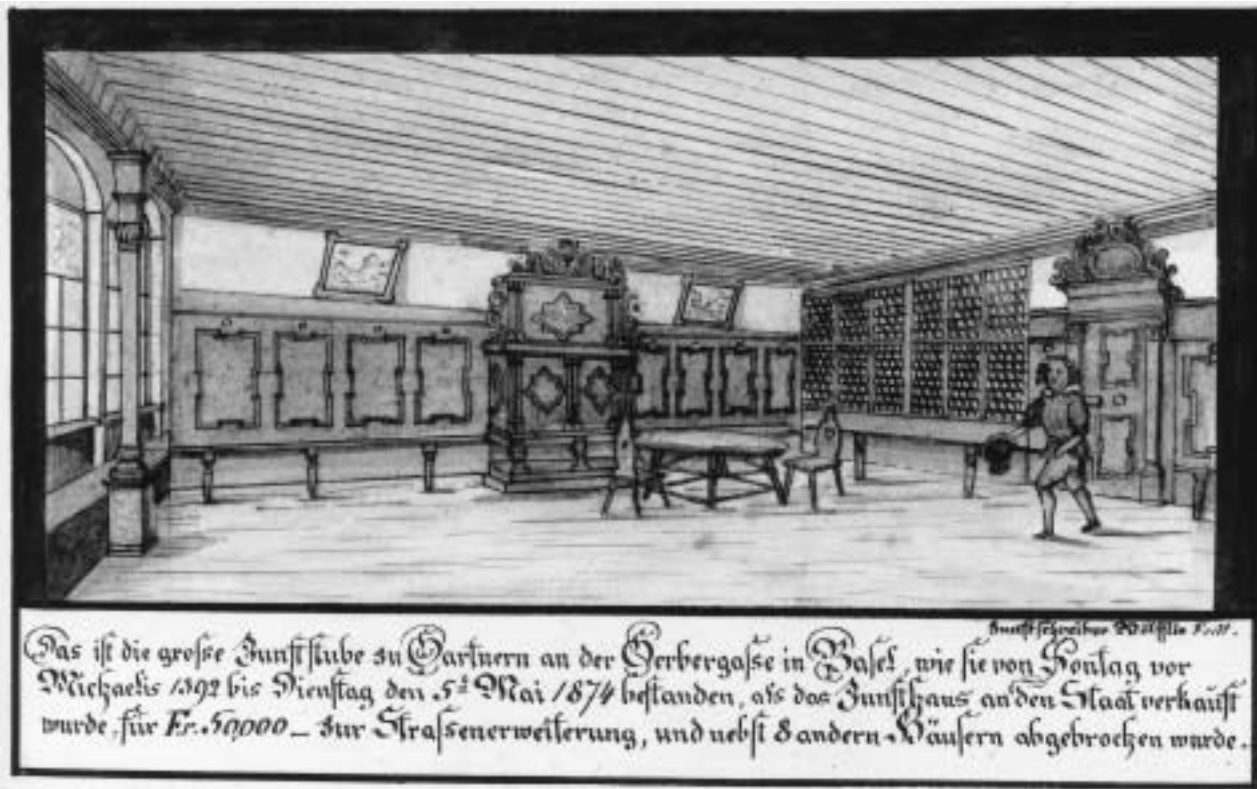 Zunftschreiber Wölfflin
Das ist die grosse Zunftstube zu Gartnern an der Gerbergasse in Basel, wie sie von Sontag vor
Michaelis 1392 bis Dienstag den 5t Mai 1874 bestanden, als das Zunfthaus an den Staat verkauft
wurde, für Fr. 50,000 – zur Strassenerweiterung, und nebst 8 andern Häusern abgebrochen wurde.